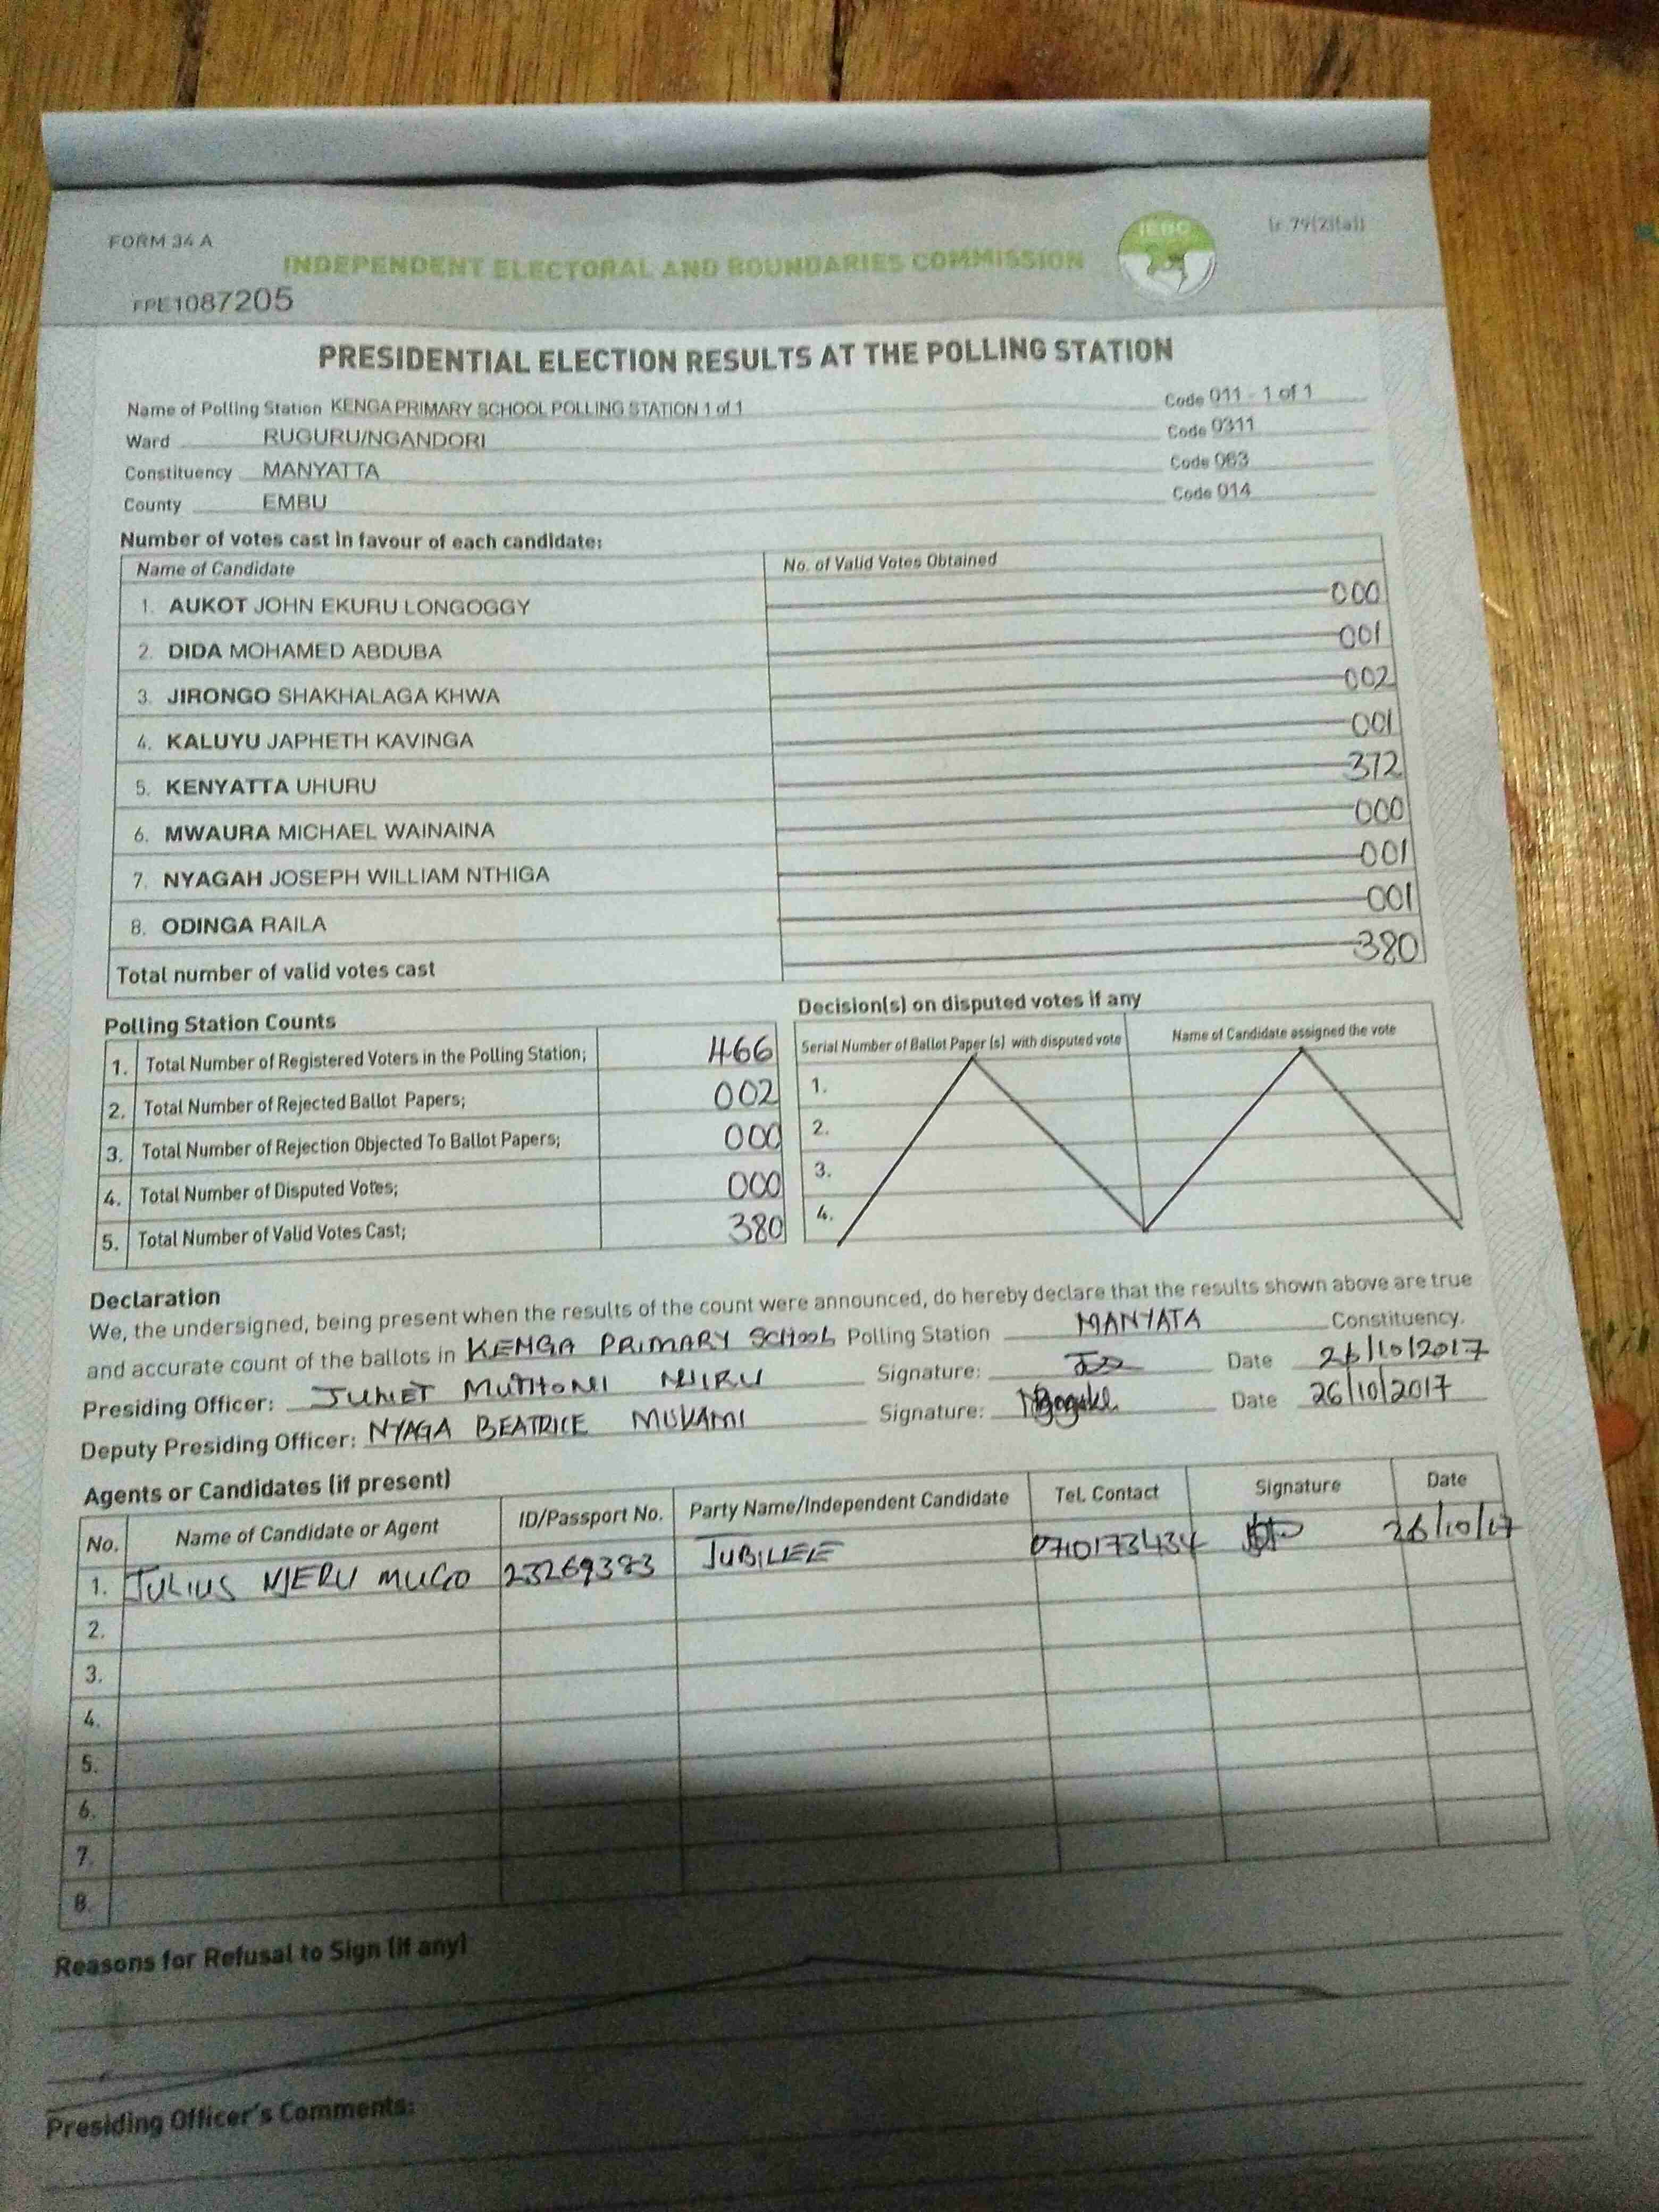 FORM 34 A
(r.79(2)(a))
IEBC
INDEPENDENT ELECTORAL AND BOUNDARIES COMMISSION
FPE1087205
PRESIDENTIAL ELECTION RESULTS AT THE POLLING STATION
Name of Polling Station KENGA PRIMARY SCHOOL POLLING STATION 1 of 1 Code 011 - 1 of 1
Ward RUGURU/NGANDORI Code 0311
Constituency MANYATTA Code 063
County EMBU Code 014
Number of votes cast in favour of each candidate:
Name of Candidate No. of Valid Votes Obtained
1. AUKOT JOHN EKURU LONGOGGY 000
2. DIDA MOHAMED ABDUBA 001
3. JIRONGO SHAKHALAGA KHWA 002
4. KALUYU JAPHETH KAVINGA 001
5. KENYATTA UHURU 372
6. MWAURA MICHAEL WAINAINA 000
7. NYAGAH JOSEPH WILLIAM NTHIGA 001
8. ODINGA RAILA 001
Total number of valid votes cast 380
Polling Station Counts
1. Total Number of Registered Voters in the Polling Station; 466
2. Total Number of Rejected Ballot Papers; 002
3. Total Number of Rejection Objected To Ballot Papers; 000
4. Total Number of Disputed Votes; 000
5. Total Number of Valid Votes Cast; 380
Decision(s) on disputed votes if any
Serial Number of Ballot Paper (s) with disputed vote Name of Candidate assigned the vote
1.
2.
3.
4.
Declaration
We, the undersigned, being present when the results of the count were announced, do hereby declare that the results shown above are true
and accurate count of the ballots in KENGA PRIMARY SCHOOL Polling Station MANYATA Constituency.
Presiding Officer: JULIET MUTHONI Signature: Date 26/10/2017
Deputy Presiding Officer: NYAGA BEATRICE MUKAMI Signature: Date 26/10/2017
Agents or Candidates (if present)
No. Name of Candidate or Agent ID/Passport No. Party Name/Independent Candidate Tel. Contact Signature Date
1. JULIUS NJERU MUGO 23269383 JUBILEE 0710173434 26/10/17
2.
3.
4.
5.
6.
7.
8.
Reasons for Refusal to Sign (if any)
Presiding Officer's Comments: